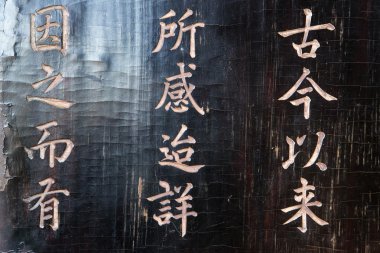 古今以来
所感迨詳
因之而有